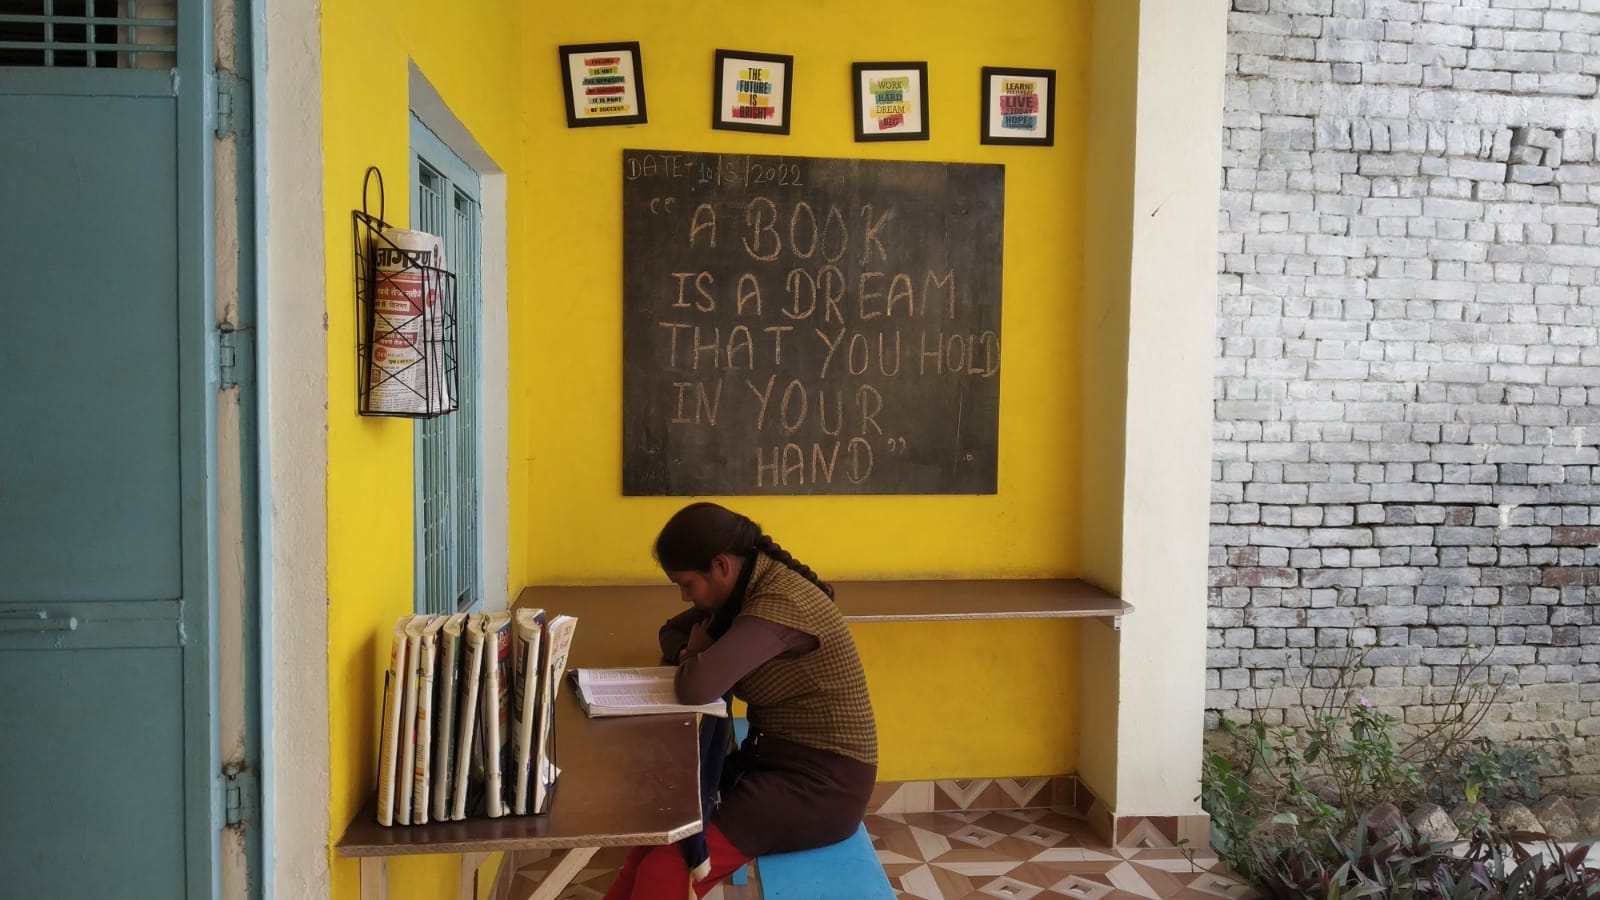 FAILURE
IS NOT
THE OPPOSITE
OF SUCCESS
IT IS PART
OF SUCCESS
THE
FUTURE
IS
BRIGHT
WORK
HARD
DREAM
BIG
LEARN FROM
YESTERDAY
LIVE
FOR TODAY
HOPE FOR
TOMORROW
DATE- 10/3/2022
“A BOOK
IS A DREAM
THAT YOU HOLD
IN YOUR
HAND”
जागरण